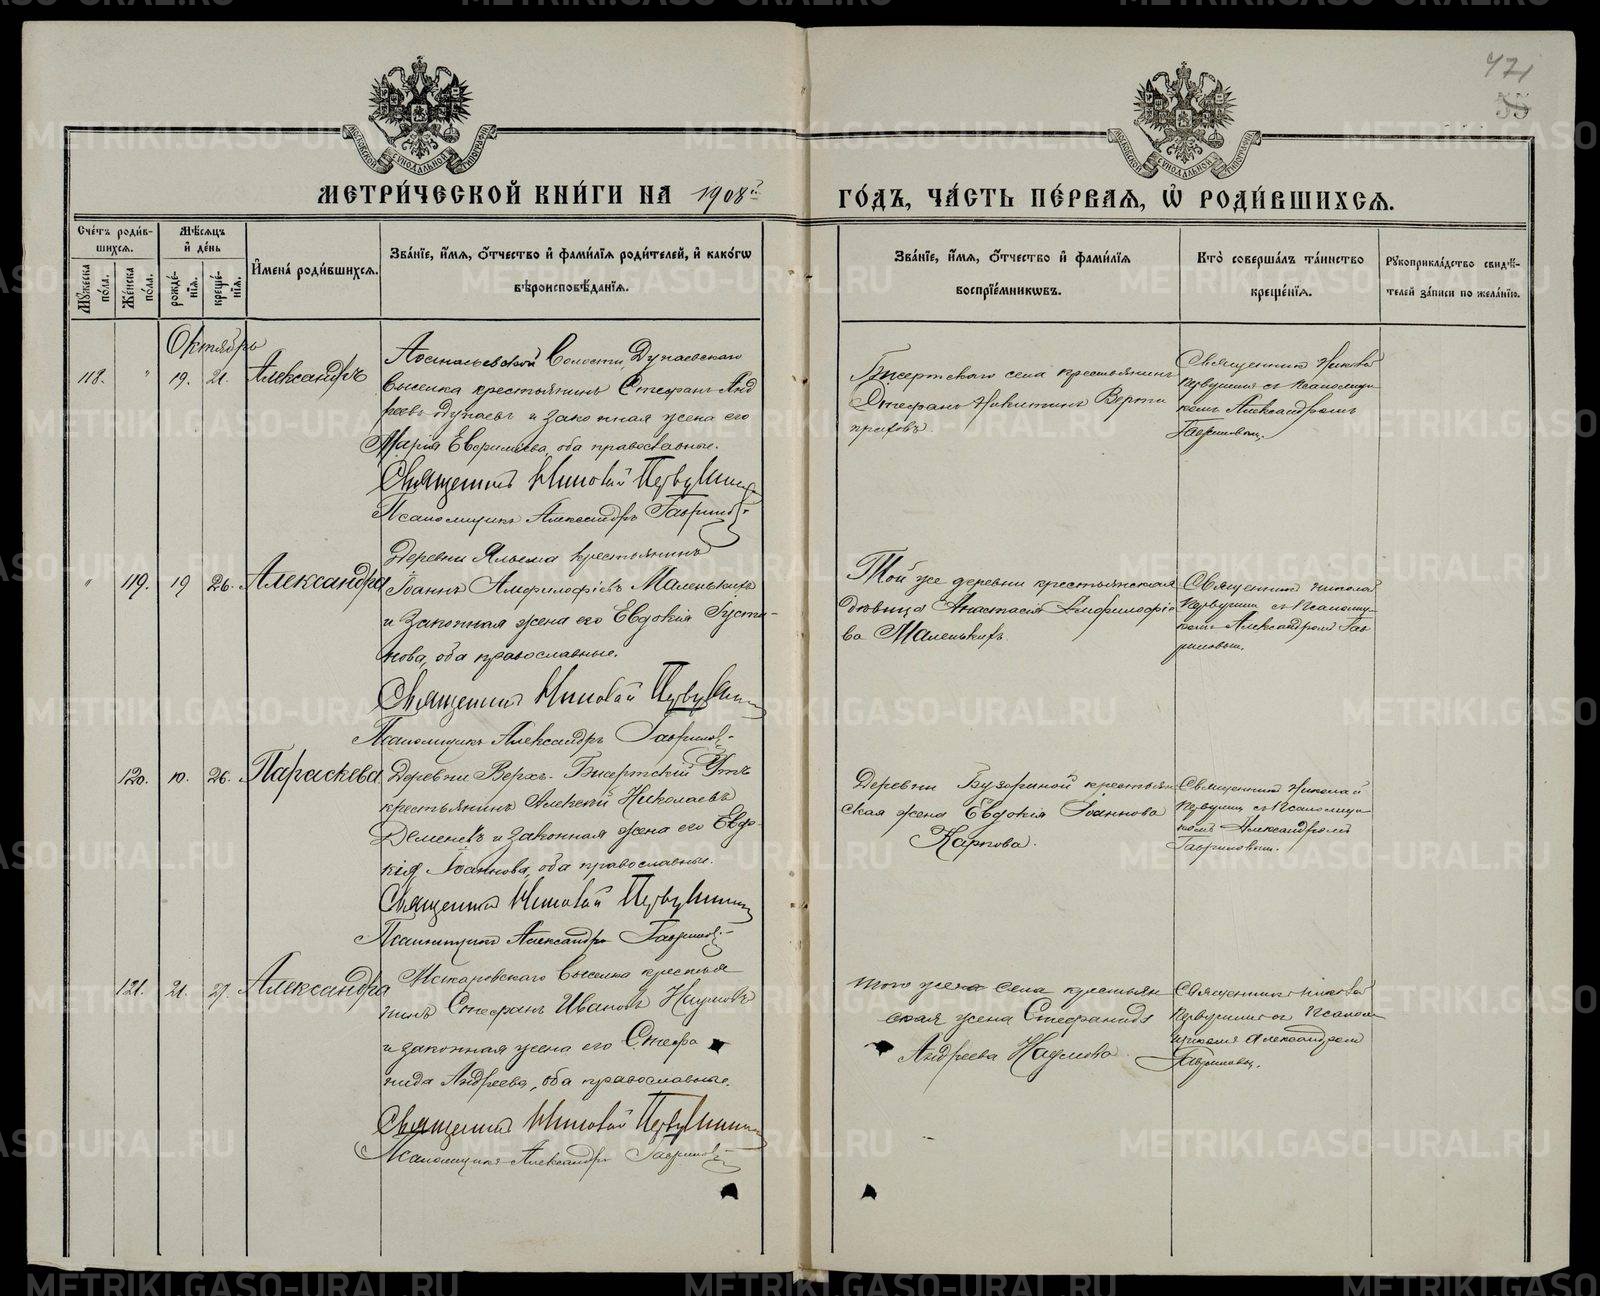 471
55
МЕТРИ́ЧЕСКОЙ КНИ́ГИ НА 1908й
ГО́ДЪ, ЧА́СТЬ ПЕ́РВАѦ, Ѡ҆ РОДИ́ВШИХСѦ.
Сче́тъ роди́в-
шихсѧ.
Мꙋ́жеска по́ла.
Же́нска по́ла.
Мѣ́сѧцъ и҆ де́нь
рожде́-
нїѧ.
креще́-
нїѧ.
И҆мена̀ роди́вшихсѧ.
Зва́нїе, и҆́мѧ, ѻ҆́тчество и҆ фами́лїѧ роди́телей, и҆ како́гѡ
вѣроисповѣ́данїѧ.
Зва́нїе, и҆́мѧ, ѻ҆́тчество и҆ фами́лїѧ
воспрїе́мникѡвъ.
Кто̀ соверша́лъ та́инство
креще́нїѧ.
Рꙋкоприкла́дство свидѣ́-
телей за́писи по жела́нїю.
Октябрь
118. " 19. 21. Александръ
Волости, Дунаевскаго
выселка крестьянинъ Стефанъ Анд
реевъ Дунаевъ и законная жена его
Марія Евфимьева, оба православные.
Священникъ Николай Первушинъ
Псаломщикъ Александръ Гавриловъ
Бисертскаго села крестьянинъ
Стефанъ Никитинъ Верхи
праховъ
Священникъ Николай
Первушинъ съ псаломщи
комъ Александромъ
Гавриловым.
" 119. 19 26. Александра
Деревни крестьянинъ
Іоаннъ Амфилофіевъ Маленькихъ
и законная жена его Евдокія Густи-
нова, оба православные.
Священникъ Николай Первушинъ
Псаломщикъ Александръ Гавриловъ
Той же деревни крестьянская
дѣвица Анастасія Амфилофіе
ва Маленькихъ.
Священникъ Николай
Первушин съ псаломщи-
комъ Александромъ Гав
риловым.
120. 10. 26. Параскева
Деревни Верхъ-Бисертский
крестьянинъ Алексѣй Николаевъ
Деменевъ и законная жена его Евдо-
кія Іоаннова, оба православные.
Священникъ Николай Первушинъ
Псаломщикъ Александръ Гавриловъ
Деревни крестьян
ская жена Евдокія Іоаннова
Карпова.
Священникъ Николай
Первушин съ псаломщи
комъ Александромъ
Гавриловым.
121. 21. 27. Александра
Макаровскаго выселка крестья
нинъ Стефанъ Ивановъ Наумовъ
и законная жена его Стефа
нида Андреева, оба православные.
Священникъ Николай Первушинъ
Псаломщикъ Александръ Гавриловъ
того же села крестьян
ская жена Стефанида
Андреева Наумова
Священникъ Николай
Первушин съ псалом
щикомъ Александром
Гавриловым.
METRIKI.GASO-URAL.RU